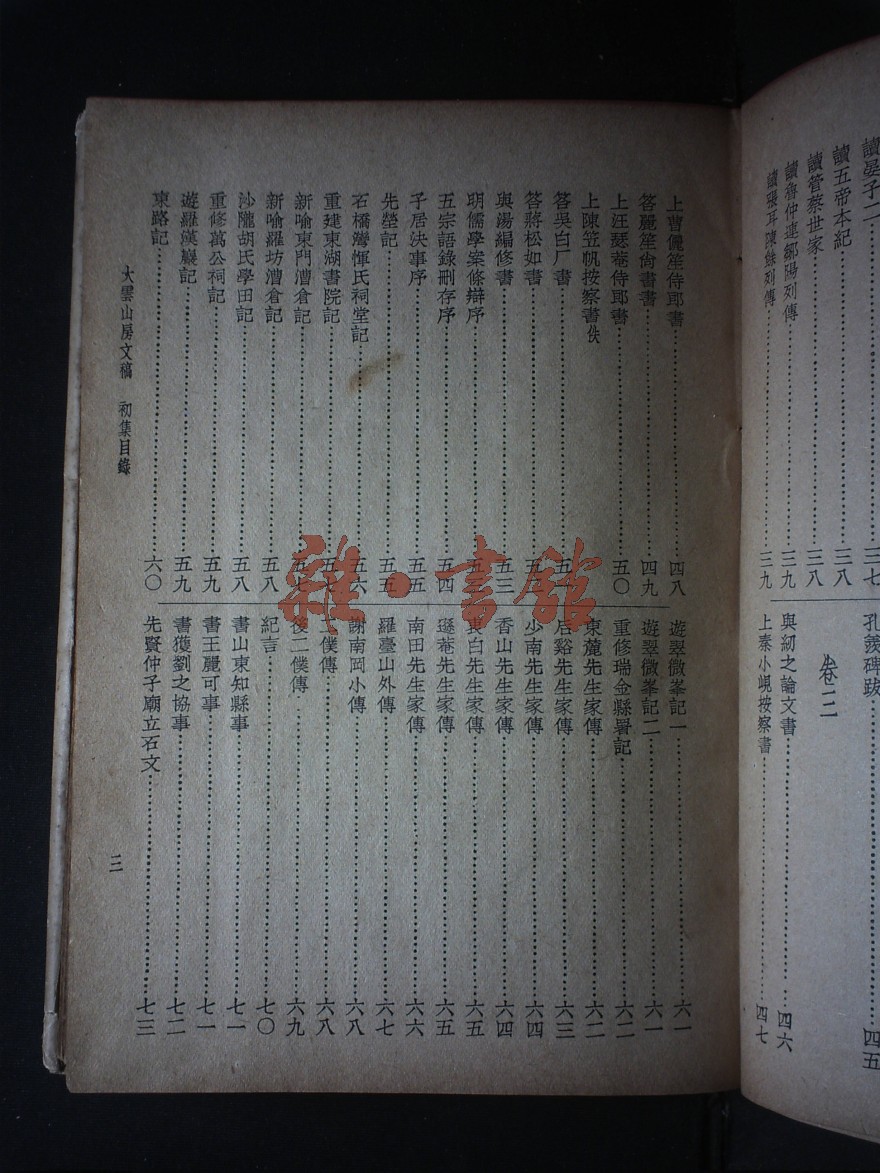 讀五帝本紀……三八
讀管蔡世家……三八
讀魯仲連鄒陽列傳……三九
讀張耳陳餘列傳……三九
孔羨碑跋……四五
卷三
與紉之論文書……四六
上秦小峴按察書……四七
上曹儷笙侍郎書……四八
答麗笙尙書書……四九
上汪瑟菴侍郎書……五〇
上陳笠帆按察書佚
答吳白厂書
答蔣松如書
與湯編修書……五三
明儒學案條辯序
五宗語錄刪存序……五四
子居決事序……五五
先塋記……五五
石橋灣惲氏祠堂記……五六
重建東湖書院記
新喻東門漕倉記
新喻羅坊漕倉記……五八
沙隴胡氏學田記……五八
重修萬公祠記……五九
遊羅漢巖記……五九
東路記……六〇
遊翠微峯記一……六一
遊翠微峯記二……六一
重修瑞金縣署記……六二
東麓先生家傳……六二
后谿先生家傳……六三
少南先生家傳……六四
香山先生家傳……六四
衷白先生家傳……六五
遜菴先生家傳……六五
南田先生家傳……六六
羅臺山外傳……六七
謝南岡小傳……六八
二僕傳……六八
後二僕傳……六九
紀言……七〇
書山東知縣事……七一
書王麗可事……七一
書獲劉之協事……七二
先賢仲子廟立石文……七三
大雲山房文稿　初集目錄
三
雜·書館